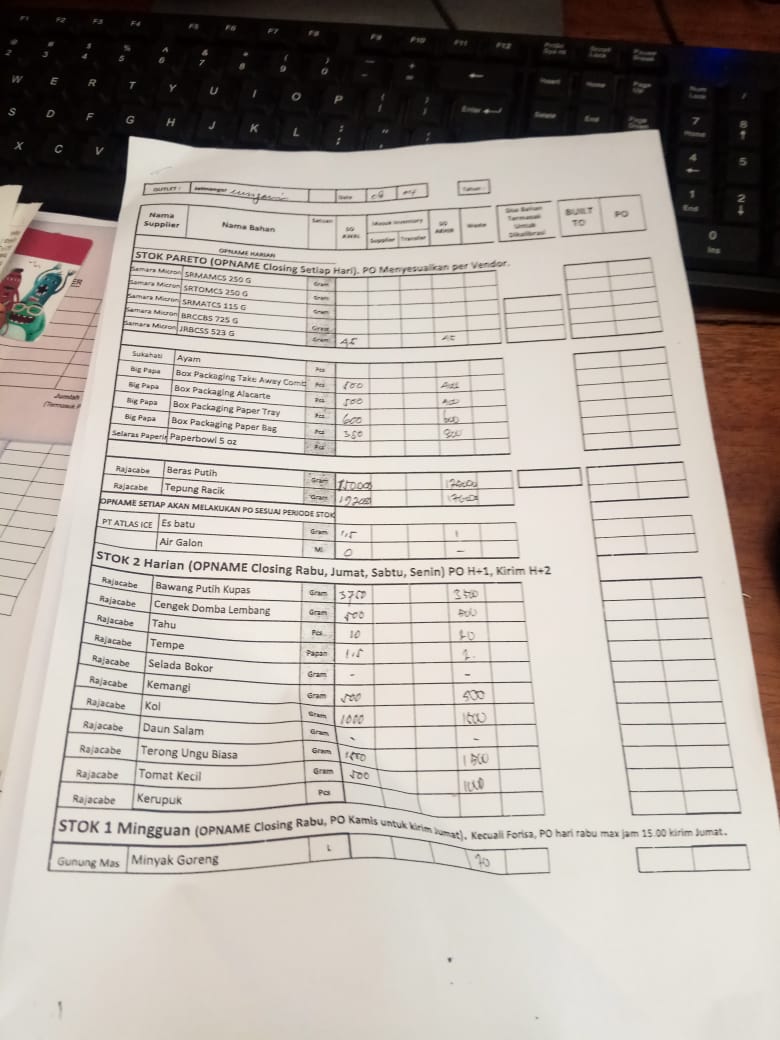 OUTLET :
Date 08 04
Nama Supplier Nama Bahan Satuan SO AWAL Masuk Inventory Supplier Transfer SO AKHIR Waste Sisa Bahan Termasak Untuk Dikalibrasi BUILT TO PO
OPNAME HARIAN
STOK PARETO (OPNAME Closing Setiap Hari). PO Menyesuaikan per Vendor.
Samara Micron SRMAMCS 250 G Gram
Samara Micron SRTOMCS 250 G Gram
Samara Micron SRMATCS 115 G Gram
Samara Micron BRCCBS 725 G Gram
Samara Micron JRBCSS 523 G Gram 45 45
Sukahati Ayam Pcs
Big Papa Box Packaging Take Away Comb Pcs 500
Big Papa Box Packaging Alacarte Pcs 500
Big Papa Box Packaging Paper Tray Pcs 600 600
Big Papa Box Packaging Paper Bag Pcs 350
Selaras Paperin Paperbowl 5 oz Pcs
Rajacabe Beras Putih Gram
Rajacabe Tepung Racik Gram
OPNAME SETIAP AKAN MELAKUKAN PO SESUAI PERIODE STOK
PT ATLAS ICE Es batu Gram 1,5 1
Air Galon ML 0 -
STOK 2 Harian (OPNAME Closing Rabu, Jumat, Sabtu, Senin) PO H+1, Kirim H+2
Rajacabe Bawang Putih Kupas Gram 3750 3500
Rajacabe Cengek Domba Lembang Gram 500 500
Rajacabe Tahu Pcs 10 20
Rajacabe Tempe Papan 1,5 2
Rajacabe Selada Bokor Gram - -
Rajacabe Kemangi Gram 500
Rajacabe Kol Gram 1000
Rajacabe Daun Salam Gram - -
Rajacabe Terong Ungu Biasa Gram
Rajacabe Tomat Kecil Gram 500 1000
Rajacabe Kerupuk Pcs
STOK 1 Mingguan (OPNAME Closing Rabu, PO Kamis untuk kirim Jumat). Kecuali Forisa, PO hari rabu max jam 15.00 kirim Jumat.
Gunung Mas Minyak Goreng L 70